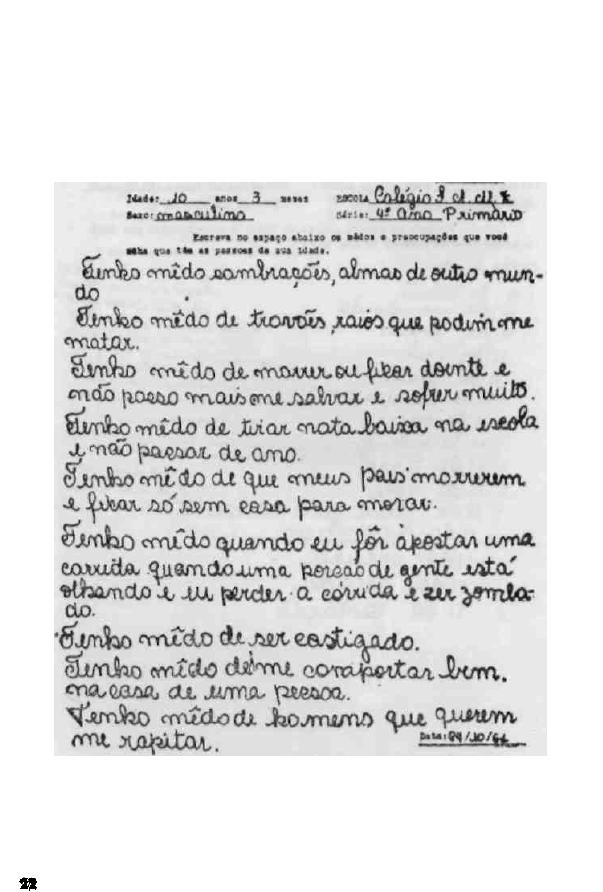 Idade: 10 anos 3 meses ESCOLA Colégio
Sexo: masculino Série: 4º Ano Primário
Escreva no espaço abaixo os mêdos e preocupações que você
acha que têm as pessoas da sua idade.
Tenho mêdo sombrações, almas de outro mun-
do
Tenho mêdo de trovões, raios que podem me
matar.
Tenho mêdo de morrer ou ficar doente e
não posso mais me salvar e sofrer muito.
Tenho mêdo de tirar nota baixa na escola
e não passar de ano.
Tenho mêdo de que meus pais morrerem
e ficar só sem casa para morar.
Tenho mêdo quando eu fôr àpostar uma
carrida quando uma porção de gente está
olhando e eu perder a córrida e zer zomba-
do.
Tenho mêdo de ser castigado.
Tenho mêdo de me comportar bem.
na casa de uma pessoa.
Tenho mêdo de homens que querem
me rapitar. Data:
22